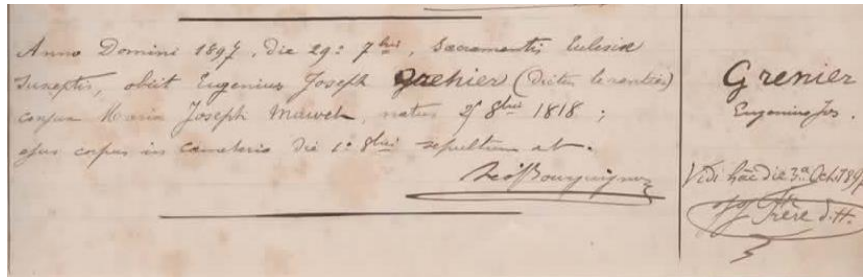 Anno Domini 1897, die 29: 7bris, Sacramentis Eclesiæ
susceptis, obiit Eugenius Joseph Grenier (dictus le rentier)
conjux Maria Joseph Mawet, natus 2 8bris 1818 ;
ejus corpus in cœmeterio die 1a 8bris sepultum est.
Bourguignon
Grenier
Eugenius Jos.
Vidi hac die 3a Oct. 1897
Frère d.H.